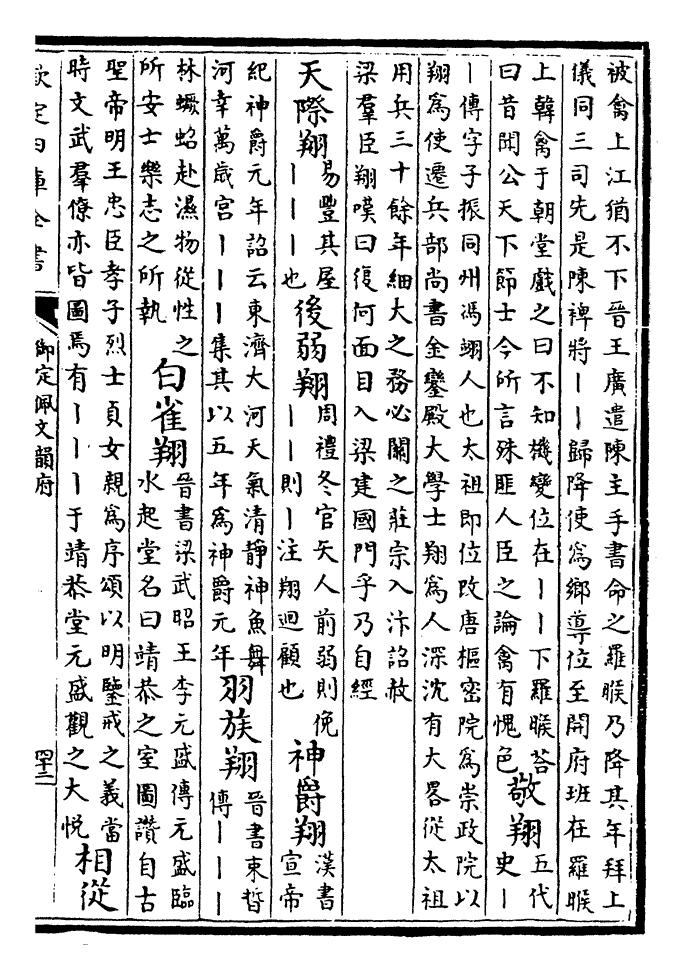 被禽上江猶不下晉王廣遣陳主手書命之羅睺乃降其年拜上
儀同三司先是陳裨將丨丨歸降使爲鄉導位至開府班在羅睺
上韓禽于朝堂戲之曰不知機變位在丨丨下羅睺荅
曰昔聞公天下節士今所言殊匪人臣之論禽有愧色
敬翔
五代
史丨
丨傳字子振同州馮翊人也太祖即位改唐樞密院爲崇政院以
翔爲使遷兵部尚書金鑾殿大學士翔爲人深沈有大畧從太祖
用兵三十餘年細大之務必關之莊宗入汴詔赦
梁羣臣翔嘆曰復何面目入梁建國門乎乃自經
天際翔
易豐其屋
丨丨丨也
後弱翔
周禮冬官矢人前弱則俛
丨丨則丨注翔迴顧也
神爵翔
漢書
宣帝
紀神爵元年詔云東濟大河天氣清靜神魚舞
河幸萬歲宮丨丨丨集其以五年爲神爵元年
羽族翔
晉書束晳
傳丨丨丨
林蟩蛒赴濕物從性之
所安士樂志之所執
白雀翔
晉書梁武昭王李元盛傳元盛臨
水起堂名曰靖恭之室圖讚自古
聖帝明王忠臣孝子烈士貞女親爲序頌以明鑒戒之義當
時文武羣僚亦皆圖焉有丨丨丨于靖恭堂元盛觀之大悅
相從
欽定四庫全書
御定佩文韻府
四十二